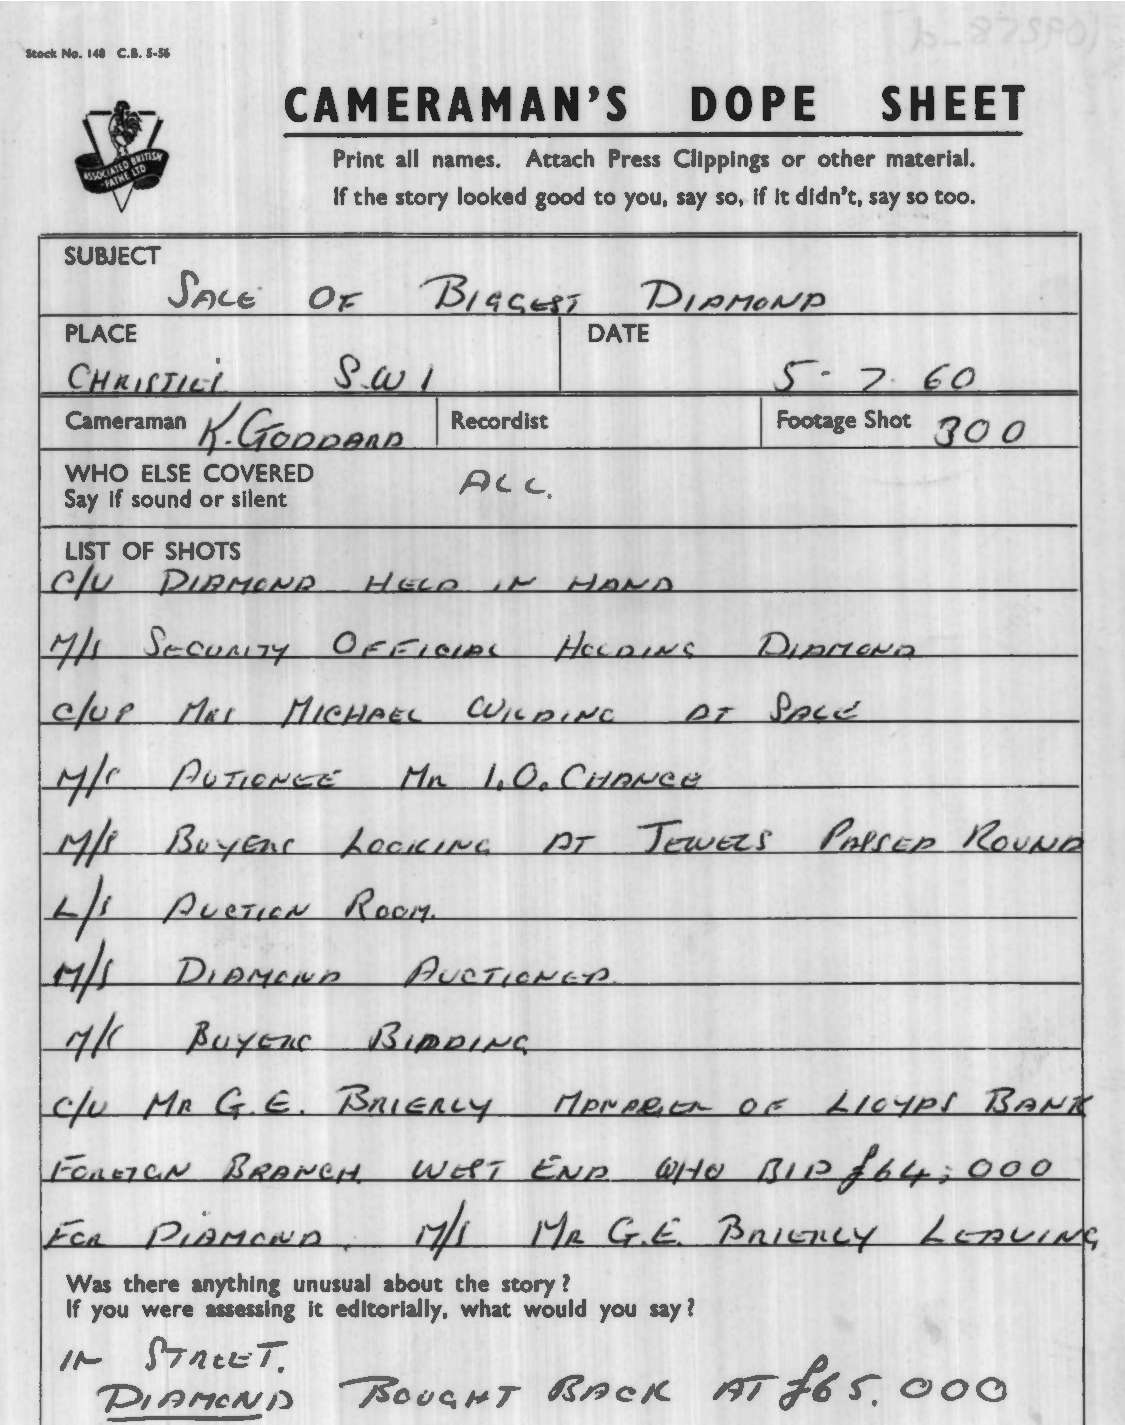 Stock No. 148 C.B. 5-56
CAMERAMAN'S DOPE SHEET
ASSOCIATED BRITISH
-PATHE LTD
Print all names. Attach Press Clippings or other material.
If the story looked good to you, say so, if it didn't, say so too.
SUBJECT
SALE OF BIGGEST DIAMOND
PLACE DATE
CHRISTIE'S S.W 1 5-7.60
Cameraman K. GODDARD Recordist Footage Shot 300
WHO ELSE COVERED
Say if sound or silent ALL.
LIST OF SHOTS
C/U DIAMOND HELD IN HAND
M/S SECURITY OFFICIAL HOLDING DIAMOND
C/UP MRS MICHAEL WILDING AT SALE
M/S AUTIONEE MR I.O. CHANCE
M/S BUYERS LOOKING AT JEWELS PASSED ROUND
L/S AUCTION ROOM.
M/S DIAMOND AUCTIONED
M/S BUYERS BIDDING
C/U MR G.E. BRIERLY MANAGER OF LLOYDS BANK
FOREIGN BRANCH WEST END WHO BID £64,000
FOR DIAMOND. M/S MR G.E. BRIERLY LEAVING
Was there anything unusual about the story?
If you were assessing it editorially, what would you say?
IN STREET.
DIAMOND BOUGHT BACK AT £65,000